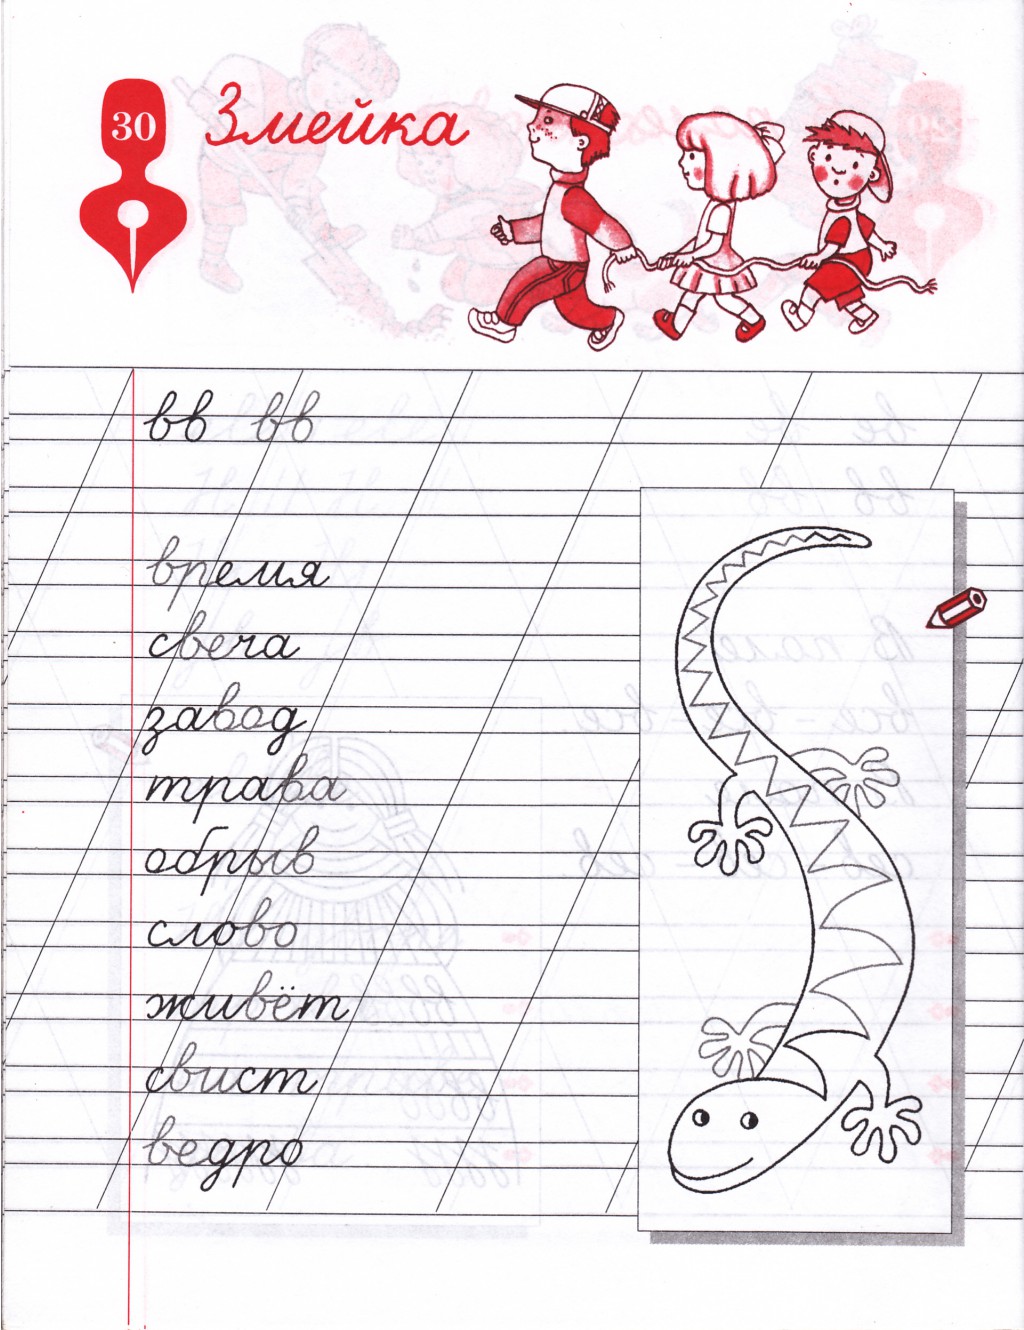 30
Змейка
вв вв
время
свеча
завод
трава
обрыв
слово
живёт
свист
ведро